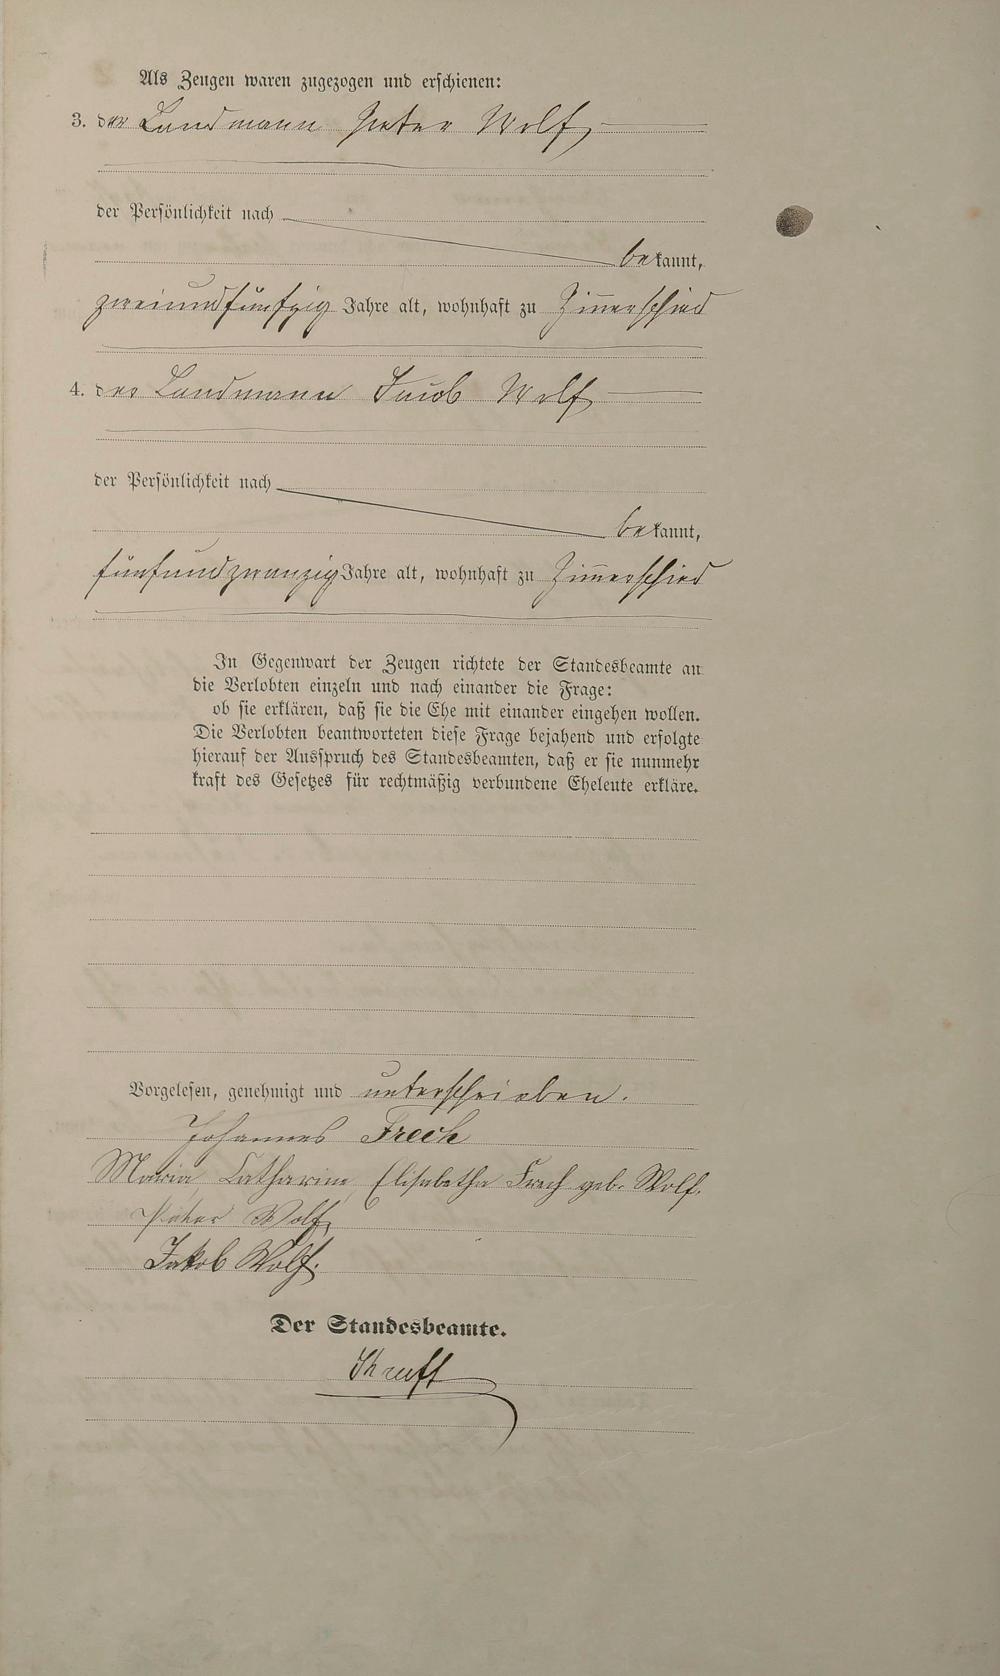 Als Zeugen waren zugezogen und erschienen:
3. der Landmann Peter Wolf,
der Persönlichkeit nach
bekannt,
zweiundfünfzig Jahre alt, wohnhaft zu Zim̅erschied
4. der Landmann Jacob Wolf
der Persönlichkeit nach
bekannt,
fünfundzwanzig Jahre alt, wohnhaft zu Zim̅erschied
In Gegenwart der Zeugen richtete der Standesbeamte an
die Verlobten einzeln und nach einander die Frage:
ob sie erklären, daß sie die Ehe mit einander eingehen wollen.
Die Verlobten beantworteten diese Frage bejahend und erfolgte
hierauf der Ausspruch des Standesbeamten, daß er sie nunmehr
kraft des Gesetzes für rechtmäßig verbundene Eheleute erkläre.
Vorgelesen, genehmigt und unterschrieben.
Johannes Frech
Maria Catharine Elisabetha Frech geb. Wolf.
Peter Wolf,
Jakob Wolf.
Der Standesbeamte.